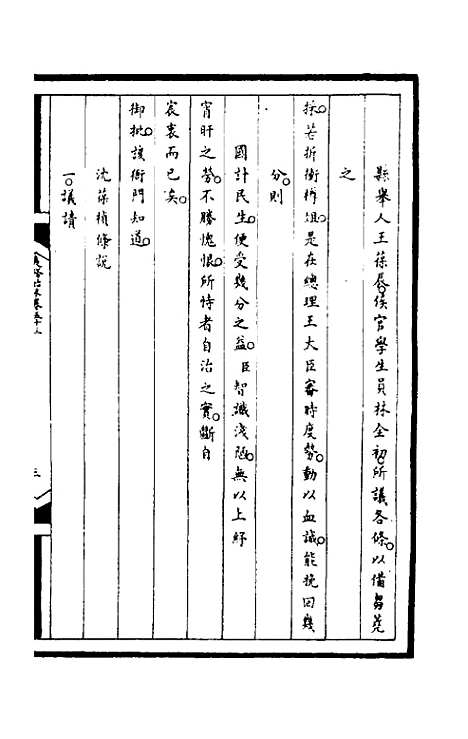 縣舉人王葆辰。侯官學生員林全初所議各條。以備芻蕘
之
採。若折衝樽俎。是在總理王大臣審時度勢。動以血誠。能挽回幾
分。則
國計民生。便受幾分之益。臣智識淺陋。無以上紓
宵旰之勞。不勝愧恨。所恃者自治之實。斷自
宸衷而已矣。
御批該衙門知道。
沈葆楨條說
一。議請
三